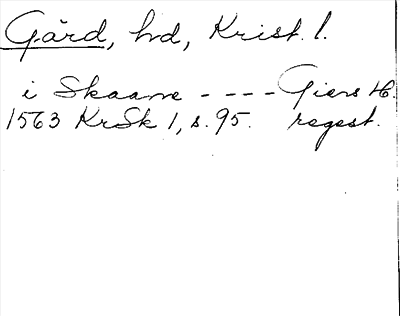 Gärd, hd, Krist. l.
i Skaane - - - - Giers H.
1563 KrSk 1, s. 95. regest.